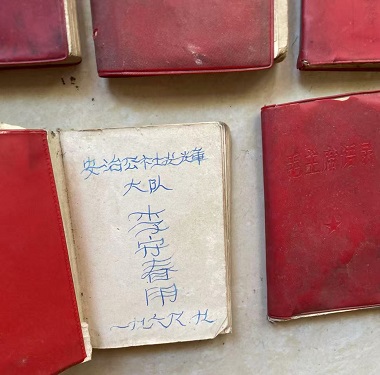 安治公社輝
大队
李守春用
一九六八.九
毛主席语录